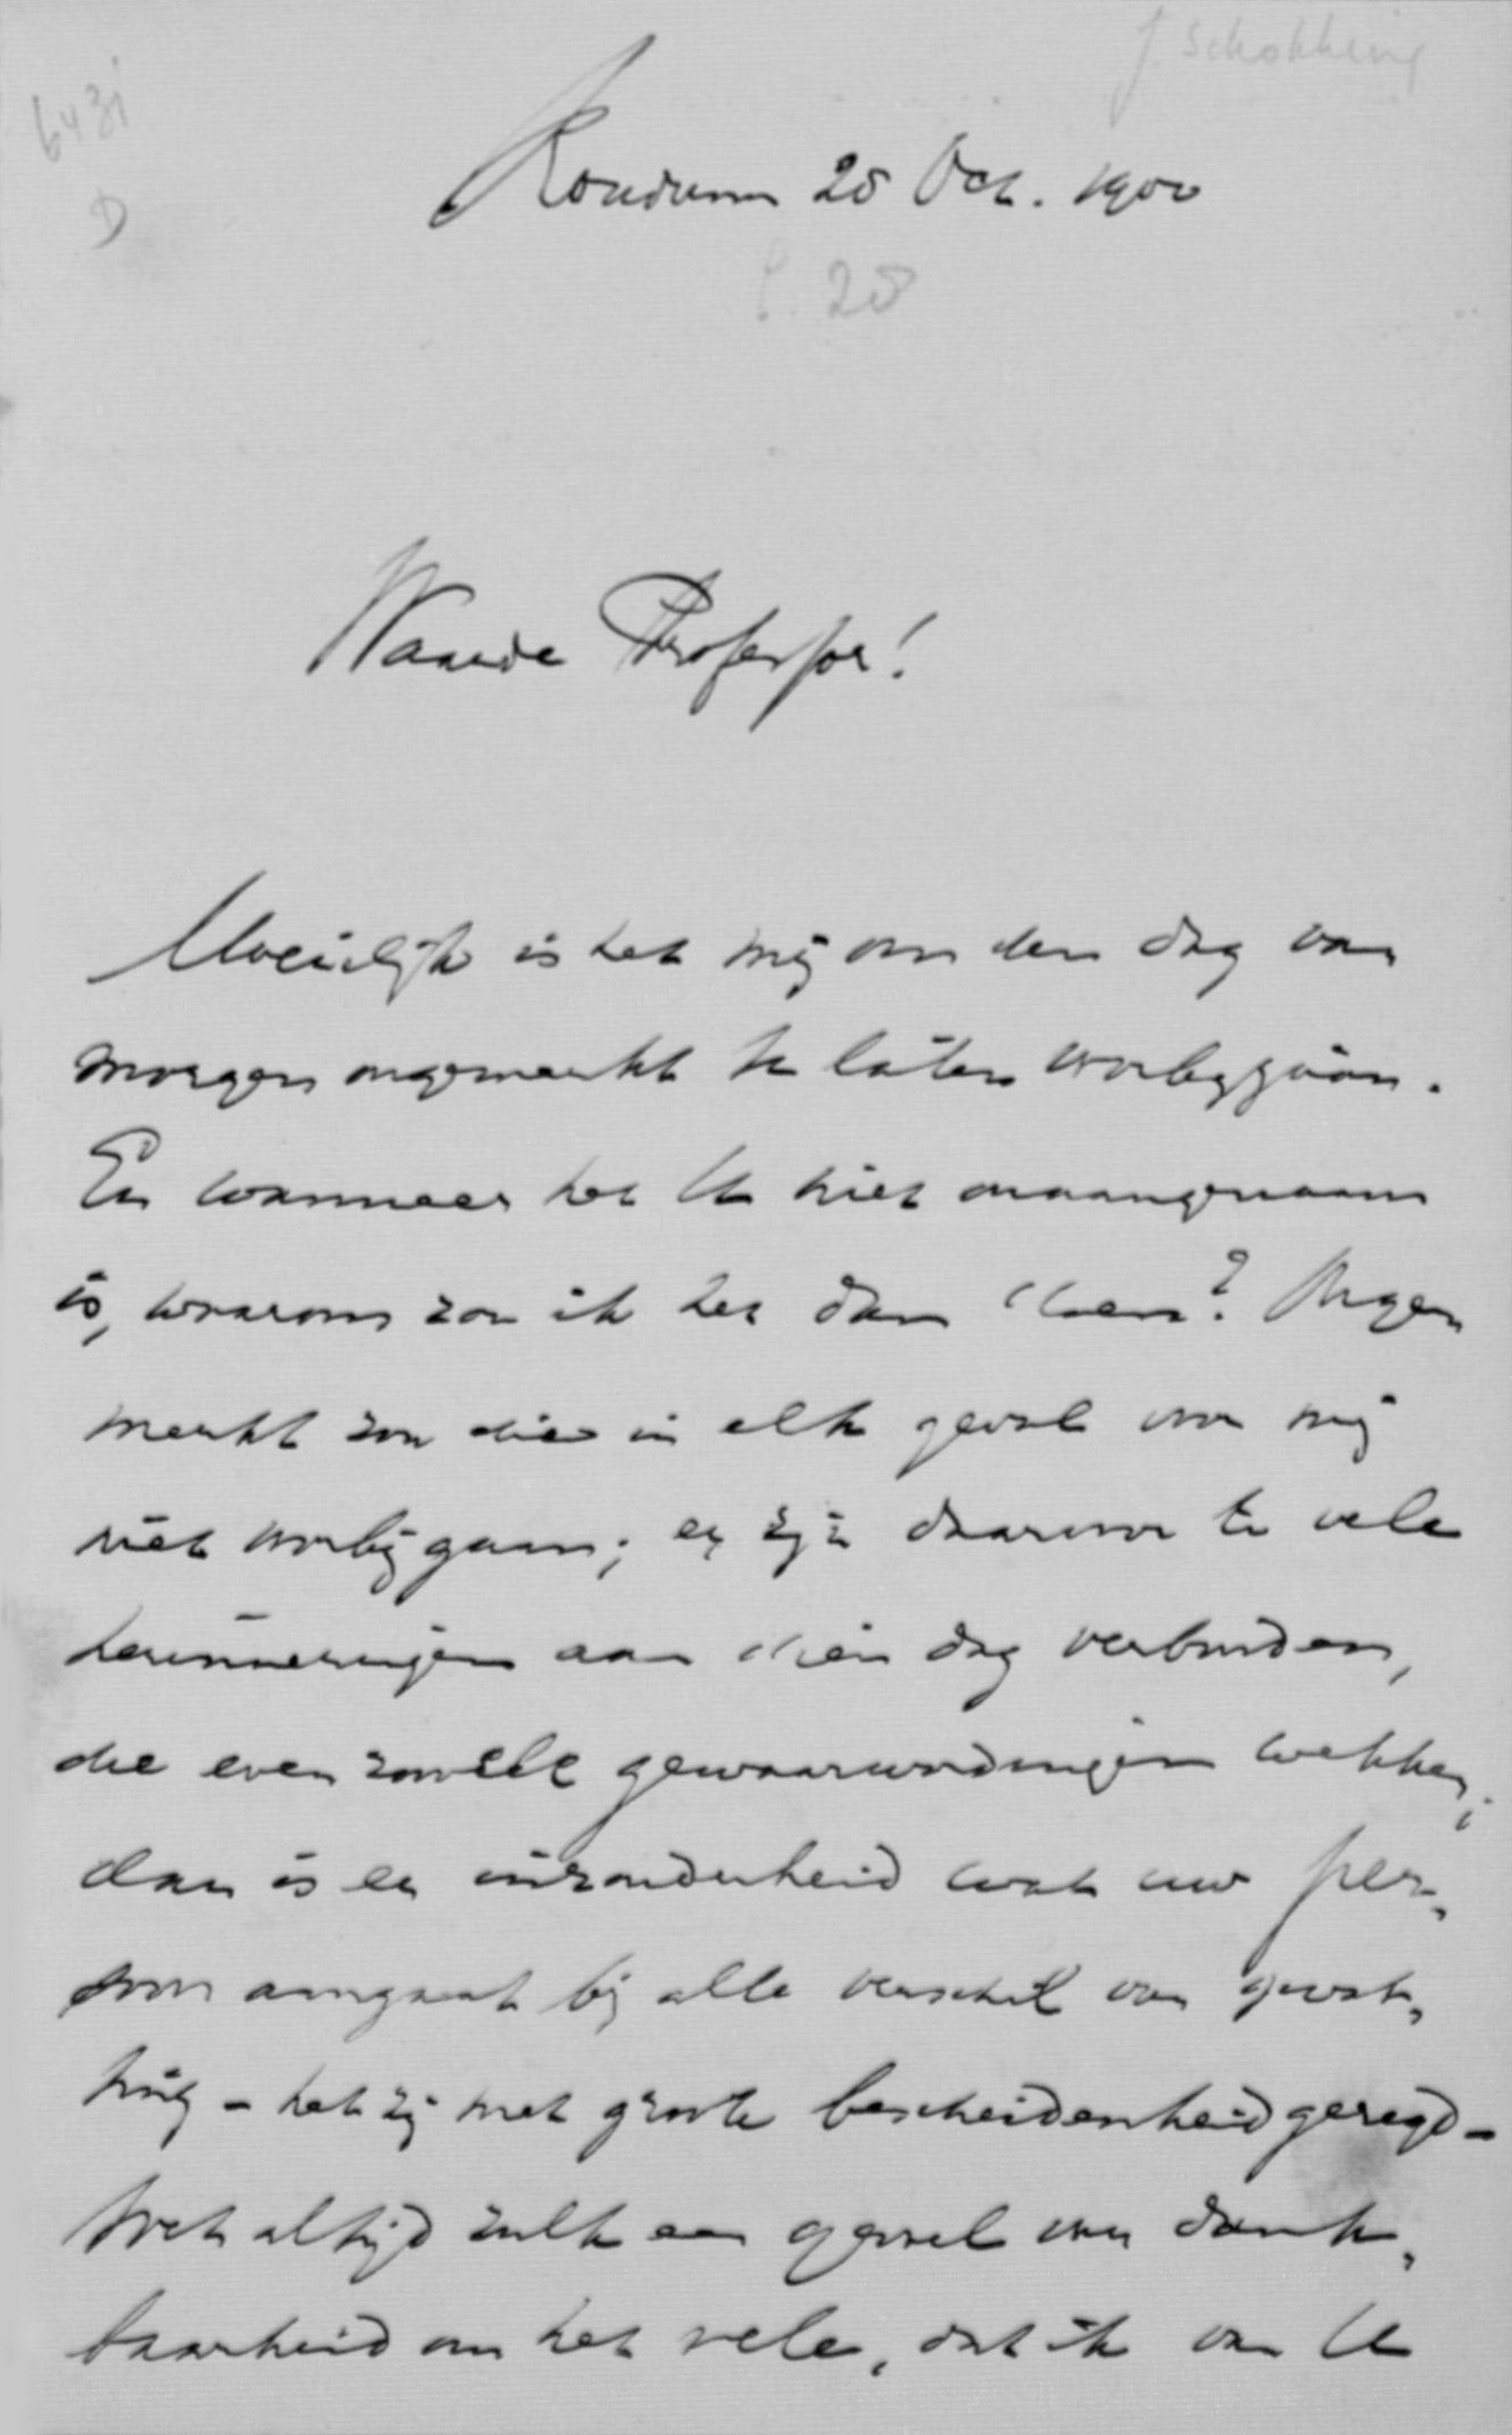 J. Schokking
6431
D
Koudum 25 Oct. 1900
28
Waarde Professor!
Moeielijk is het mij om den dag van
morgen ongemerkt te laten voorbijgaan.
En wanneer het U niet onaangenaam
is, waarom zou ik het dan doen? Onge
merkt zou die in elk geval voor mij
niet voorbijgaan; er zijn daarvoor te vele
herinneringen aan dien dag verbonden,
die even zoovele gewaarwordingen wekken;
dan is er inzonderheid wat uw per„
soon aangaat bij alle verschil van gevoe„
ling - het zij met groote bescheidenheid gezegd -
toch altijd zulk een gevoel van dank„
baarheid om het vele, dat ik van U